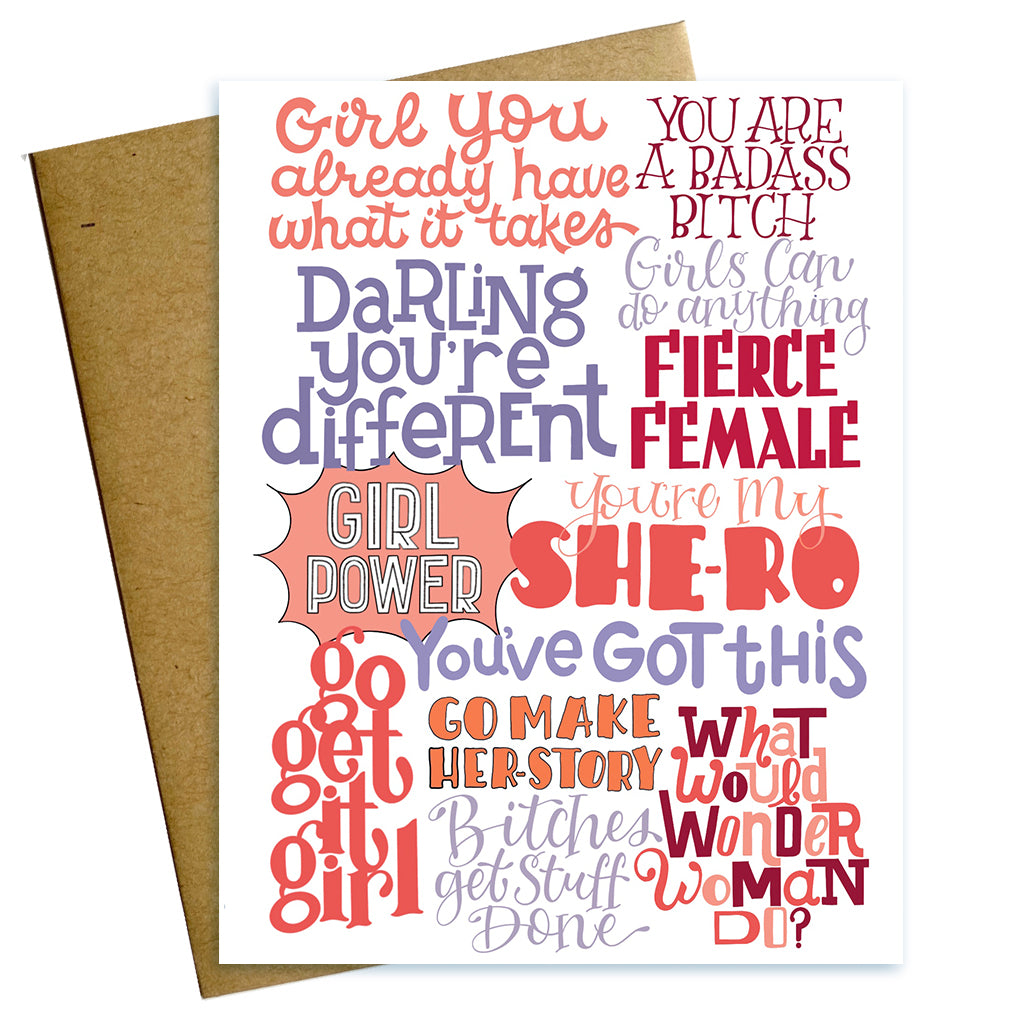 Girl you
already have
what it takes
YOU ARE
A BADASS
BITCH
DaRLiNg
you're
diffeREnt
Girls Can
do anything
FIERCE
FEMALE
GIRL
POWER
You're My
SHE-RO
You've GOT tHiS
go
get
it
girl
GO MAKE
HER-STORY
Bitches
get Stuff
Done
WhaT
Would
WonDeR
WoMaN
DO?